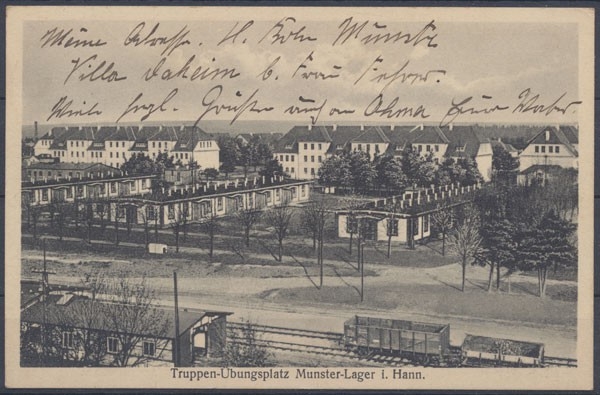 Meine Adresse. H. Köln Munster
Villa Daheim b. Frau
Viele herzl. Grüße auch an Ohma Euer Vater.
Truppen-Übungsplatz Munster-Lager i. Hann.